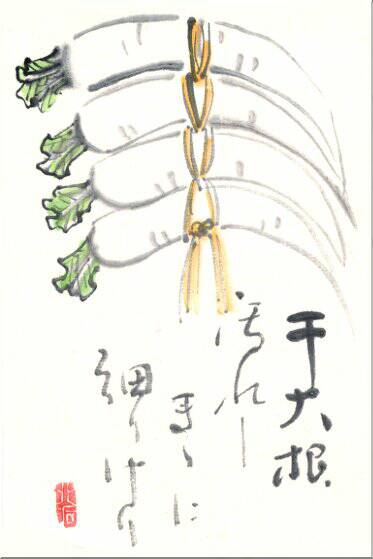 干大根
汚れし
まゝに
細りけり